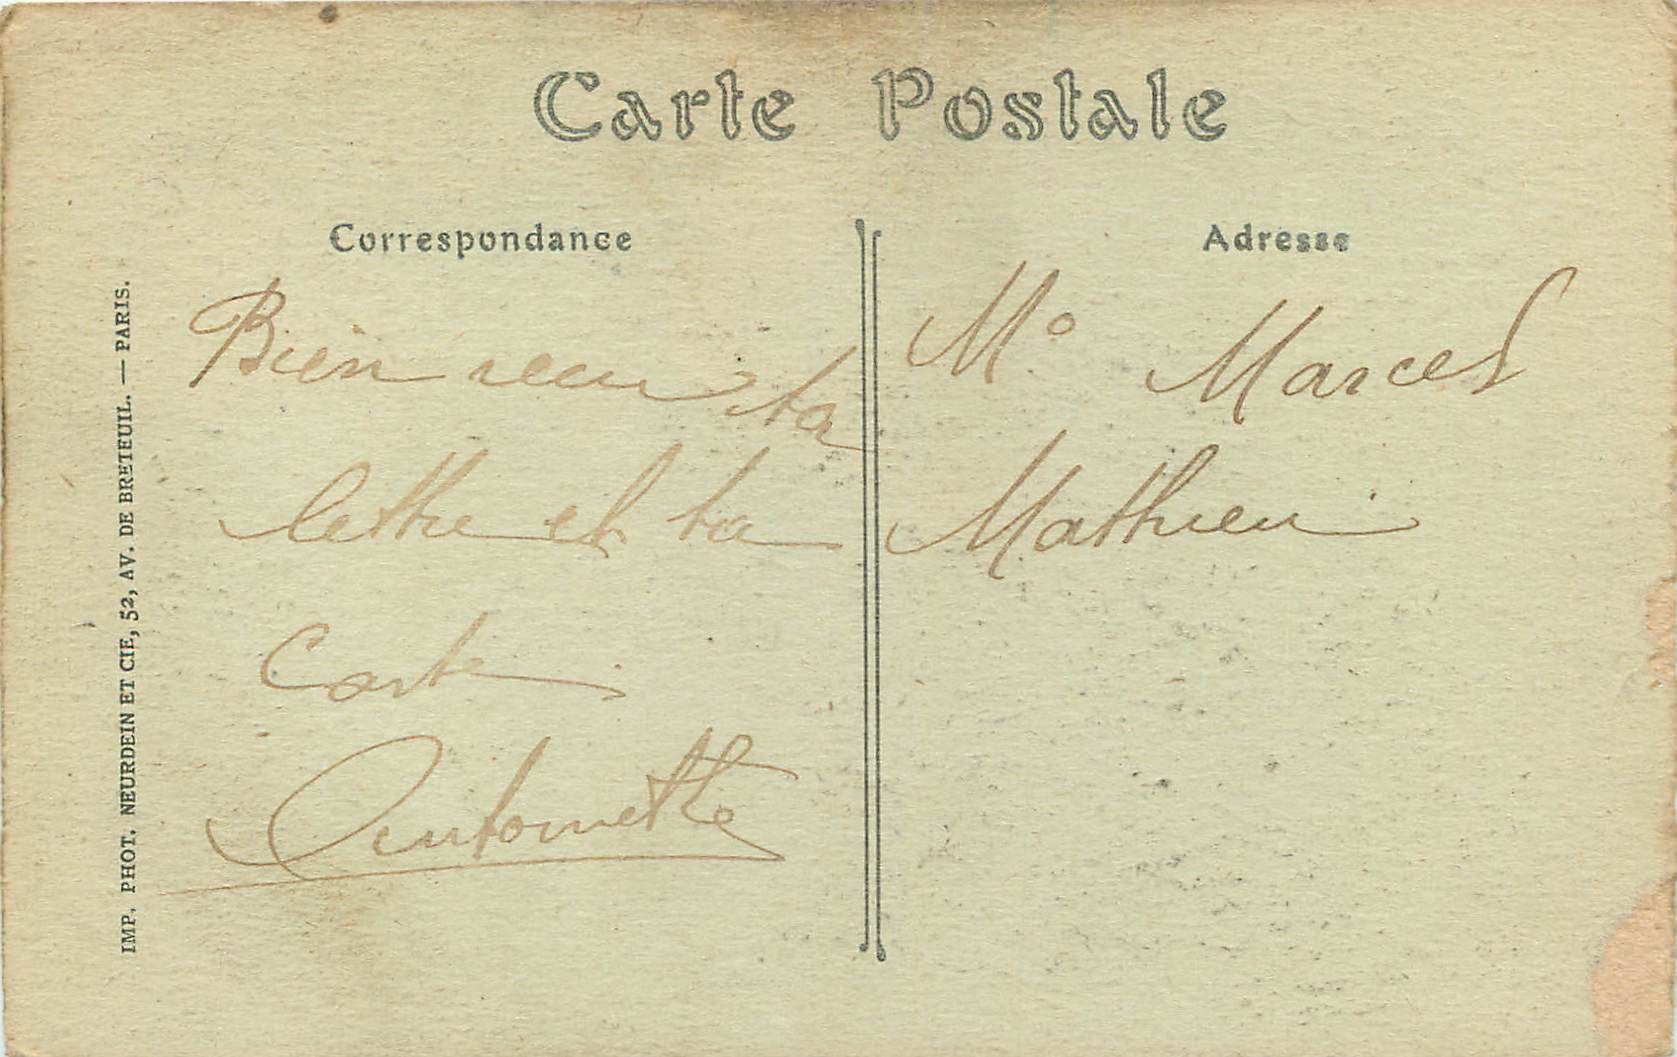 Carte Postale
Correspondance
Adresse
IMP. PHOT. NEURDEIN ET CIE, 52, AV. DE BRETEUIL. — PARIS.
Bien recu ta
lettre et ta
Carte
Antoinette
Mo Marcel
Mathieu